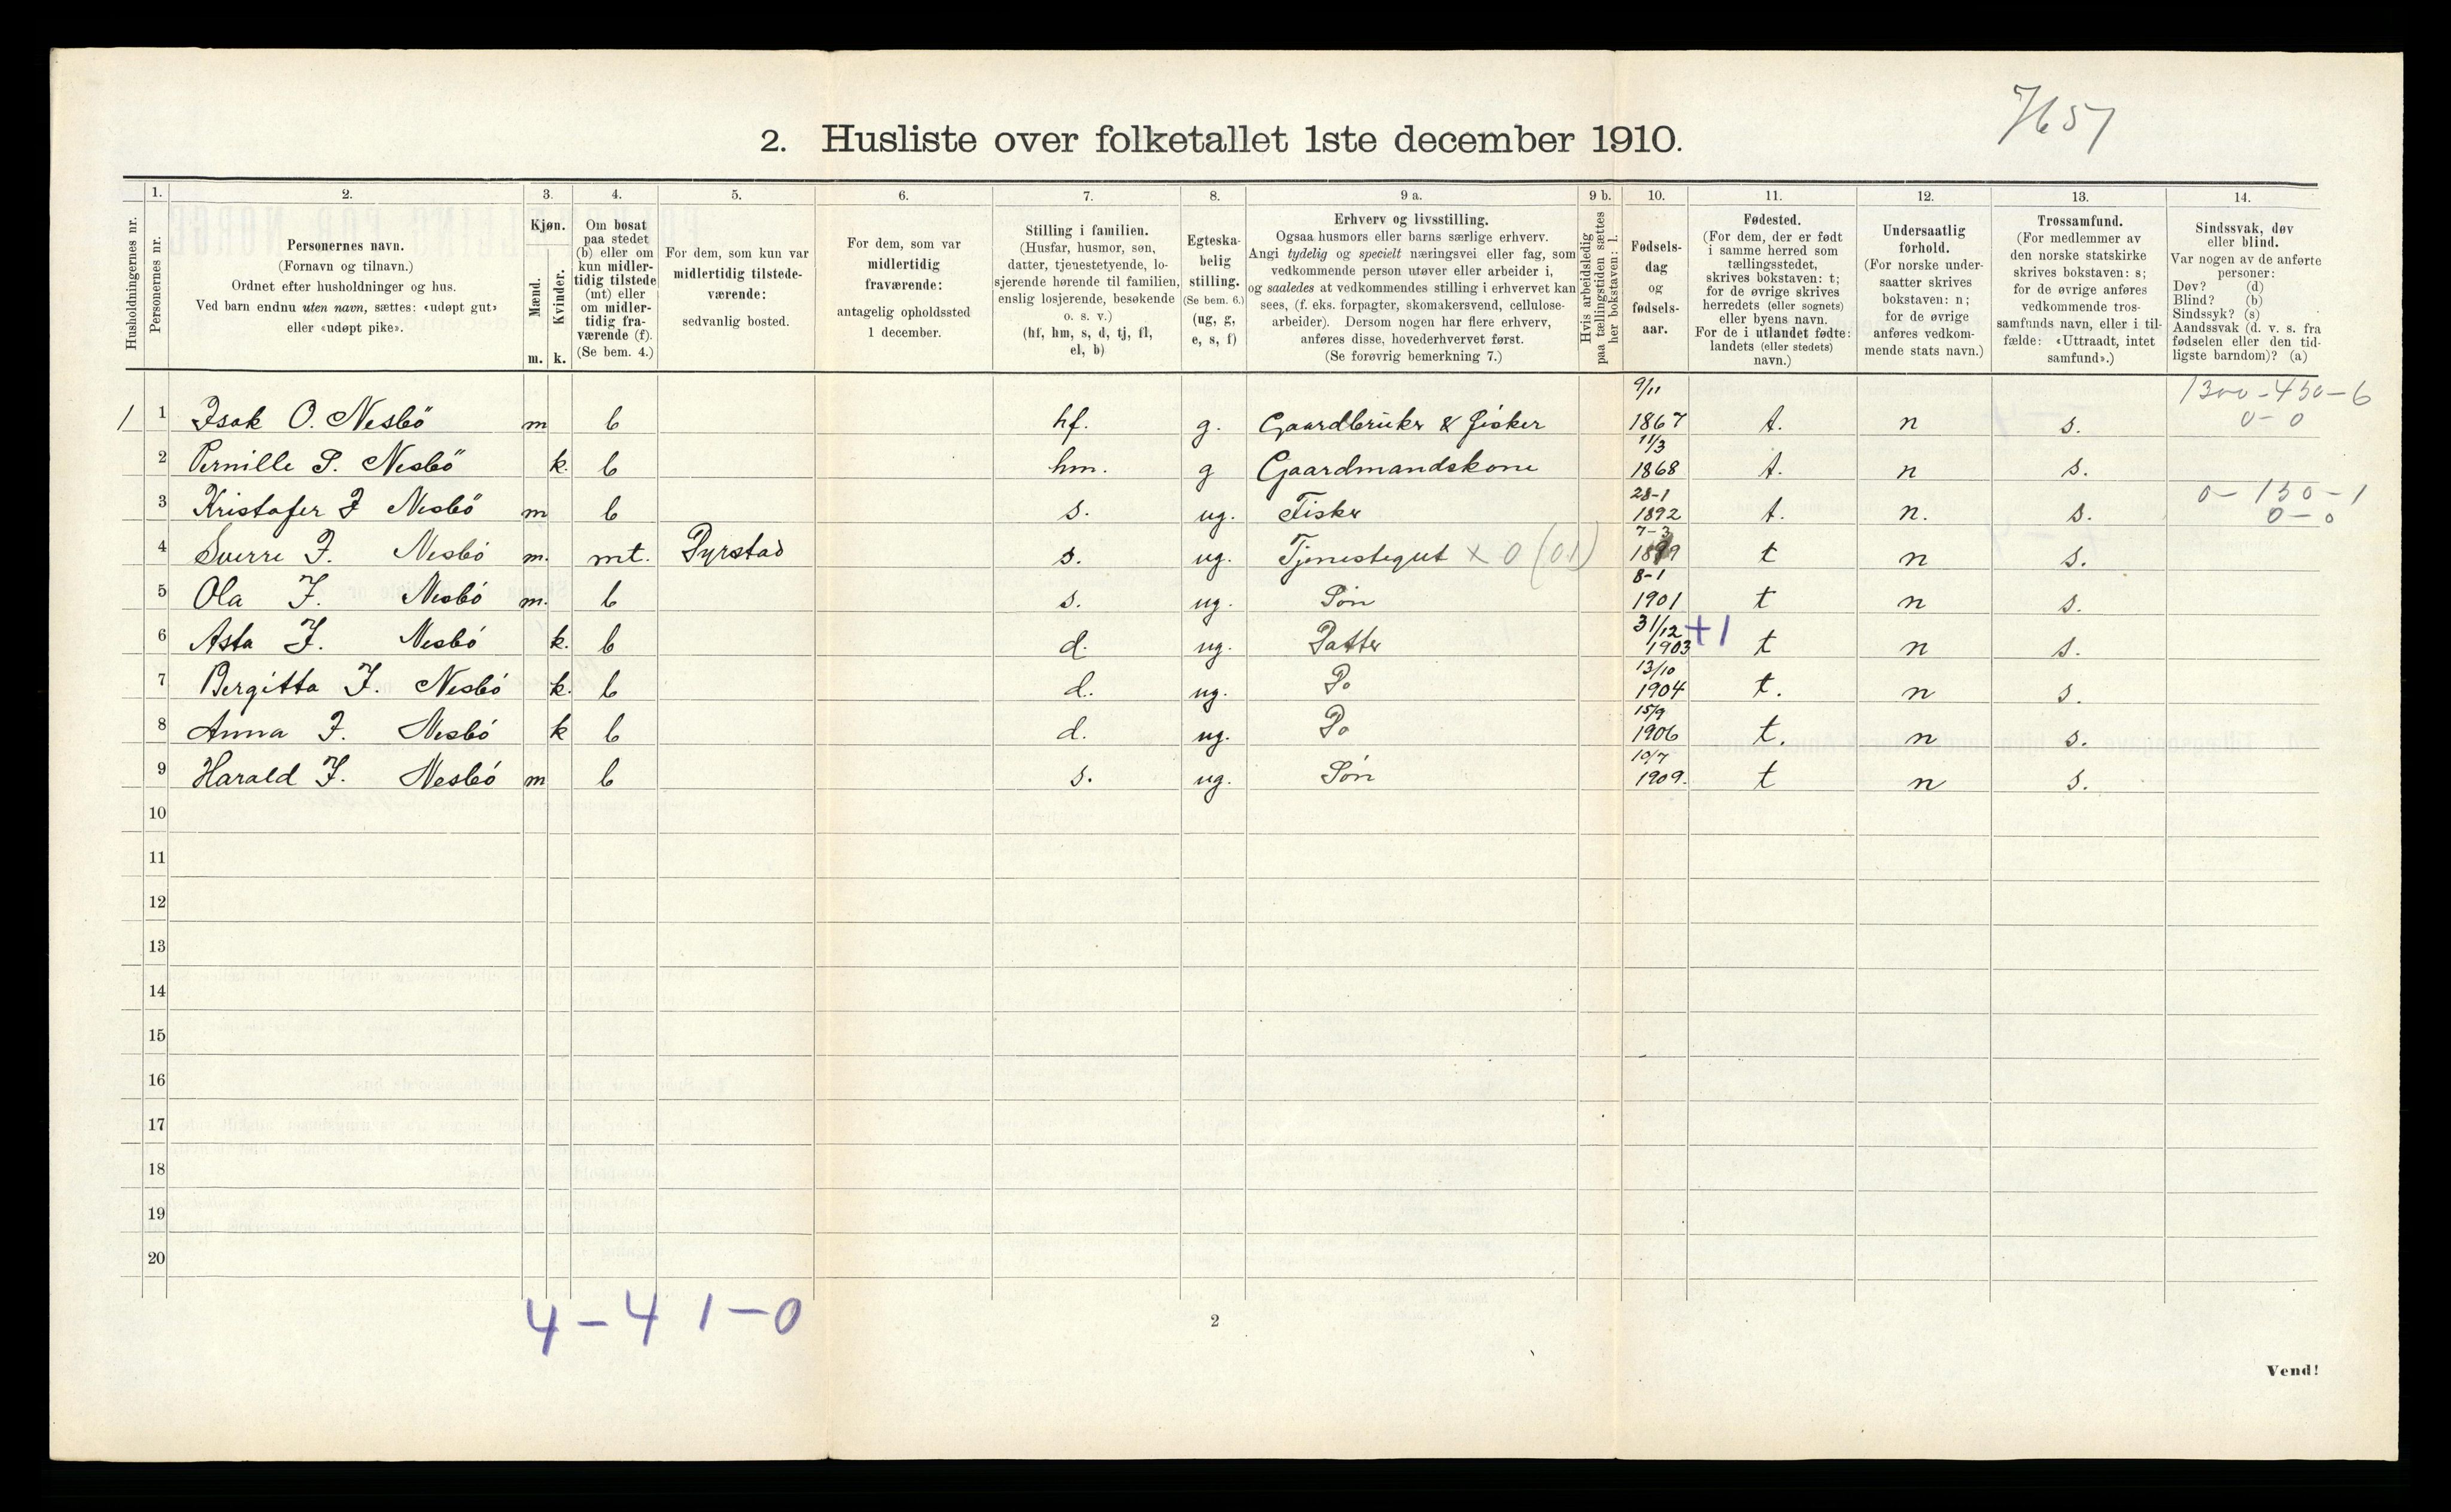 7657
2. Husliste over folketallet 1ste december 1910.
Husholdningernes nr.
1.
Personernes nr.
2.
Personernes navn.
(Fornavn og tilnavn.)
Ordnet efter husholdninger og hus.
Ved barn endnu uten navn, sættes: «udøpt gut»
eller «udøpt pike».
3.
Kjøn.
Mænd.
m.
Kvinder.
k.
4.
Om bosat
paa stedet
(b) eller om
kun midler-
tidig tilstede
(mt) eller
om midler-
tidig fra-
værende (f).
(Se bem. 4.)
5.
For dem, som kun var
midlertidig tilstede-
værende:
sedvanlig bosted.
6.
For dem, som var
midlertidig
fraværende:
antagelig opholdssted
1 december.
7.
Stilling i familien.
(Husfar, husmor, søn,
datter, tjenestetyende, lo-
sjerende hørende til familien,
enslig losjerende, besøkende
o. s. v.)
(hf, hm, s, d, tj, fl,
el, b)
8.
Egteska-
belig
stilling.
(Se bem. 6.)
(ug, g,
e, s, f)
9 a.
Erhverv og livsstilling.
Ogsaa husmors eller barns særlige erhverv.
Angi tydelig og specielt næringsvei eller fag, som
vedkommende person utøver eller arbeider i,
og saaledes at vedkommendes stilling i erhvervet kan
sees, (f. eks. forpagter, skomakersvend, cellulose-
arbeider). Dersom nogen har flere erhverv,
anføres disse, hovederhvervet først.
(Se forøvrig bemerkning 7.)
9 b.
Hvis arbeidsledig
paa tællingstiden sættes
her bokstaven: l.
10.
Fødsels-
dag
og
fødsels-
aar.
11.
Fødested.
(For dem, der er født
i samme herred som
tællingsstedet,
skrives bokstaven: t;
for de øvrige skrives
herredets (eller sognets)
eller byens navn.
For de i utlandet fødte:
landets (eller stedets)
navn.)
12.
Undersaatlig
forhold.
(For norske under-
saatter skrives
bokstaven: n;
for de øvrige
anføres vedkom-
mende stats navn.)
13.
Trossamfund.
(For medlemmer av
den norske statskirke
skrives bokstaven: s;
for de øvrige anføres
vedkommende tros-
samfunds navn, eller i til-
fælde: «Uttraadt, intet
samfund».)
14.
Sindssvak, døv
eller blind.
Var nogen av de anførte
personer:
Døv? (d)
Blind? (b)
Sindssyk? (s)
Aandssvak (d. v. s. fra
fødselen eller den tid-
ligste barndom)? (a)
9/11 1300-450-6
1 1 Isak O. Nesbö m b hf. g. Gaardbruker & fisker 1867 t. n s. 0-0
11/3
2 Pernille P. Nesbö k. b hm. g Gaardmandskone 1868 t. n s.
28-1 0-150-1
3 Kristofer I Nesbö m b s. ug. Fisker 1892 t. n. s. 0-0
7-3
4 Sverre I. Nesbó m. mt. Dyrstad s. ug. Tjenestegut x 0 (01) 1899 t n s.
8-1
5 Ola I. Nesbó m. b s. ug. Søn 1901 t n s.
31/12 +1
6 Asta I. Nesbó k. b d. ug. Datter 1903 t n s.
13/10
7 Bergitta I. Nesbó k. b d. ug. Do 1904 t. n s.
15/9
8 Anna I. Nesbó k b d. ug. Do 1906 t. n s.
10/7
9 Harald I. Nesbó m b s. ug. Søn 1909. t n s.
10
11
12
13
14
15
16
17
18
19
20
4-4 1-0
2
Vend!